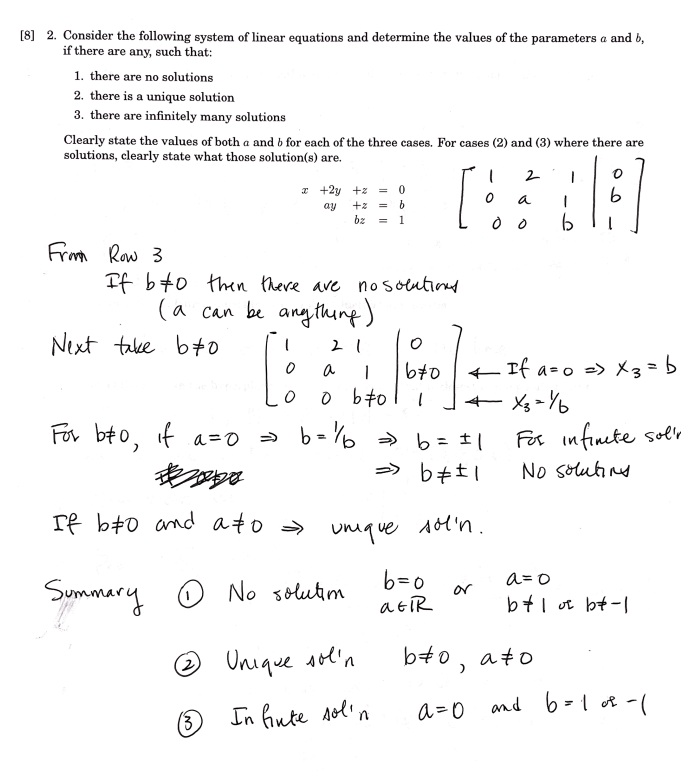 [8] 2. Consider the following system of linear equations and determine the values of the parameters a and b,
if there are any, such that:
1. there are no solutions
2. there is a unique solution
3. there are infinitely many solutions
Clearly state the values of both a and b for each of the three cases. For cases (2) and (3) where there are
solutions, clearly state what those solution(s) are.
x +2y +z = 0
ay +z = b
bz = 1
[ 1 2 1 | 0 ]
[ 0 a 1 | b ]
[ 0 0 b | 1 ]
From Row 3
If b≠0 then there are no solutions
(a can be anything)
Next take b≠0
[ 1 2 1 | 0 ]
[ 0 a 1 | b≠0 ] ← If a=0 ⇒ X3 = b
[ 0 0 b≠0 | 1 ] ← X3 = 1/b
For b≠0, if a=0 ⇒ b = 1/b ⇒ b = ±1 For infinite sol'n
⇒ b≠±1 No solutions
If b≠0 and a≠0 ⇒ unique sol'n.
Summary ① No solution b=0 a∈ℝ or a=0 b≠1 or b≠-1
② Unique sol'n b≠0, a≠0
③ Infinite sol'n a=0 and b=1 or -1